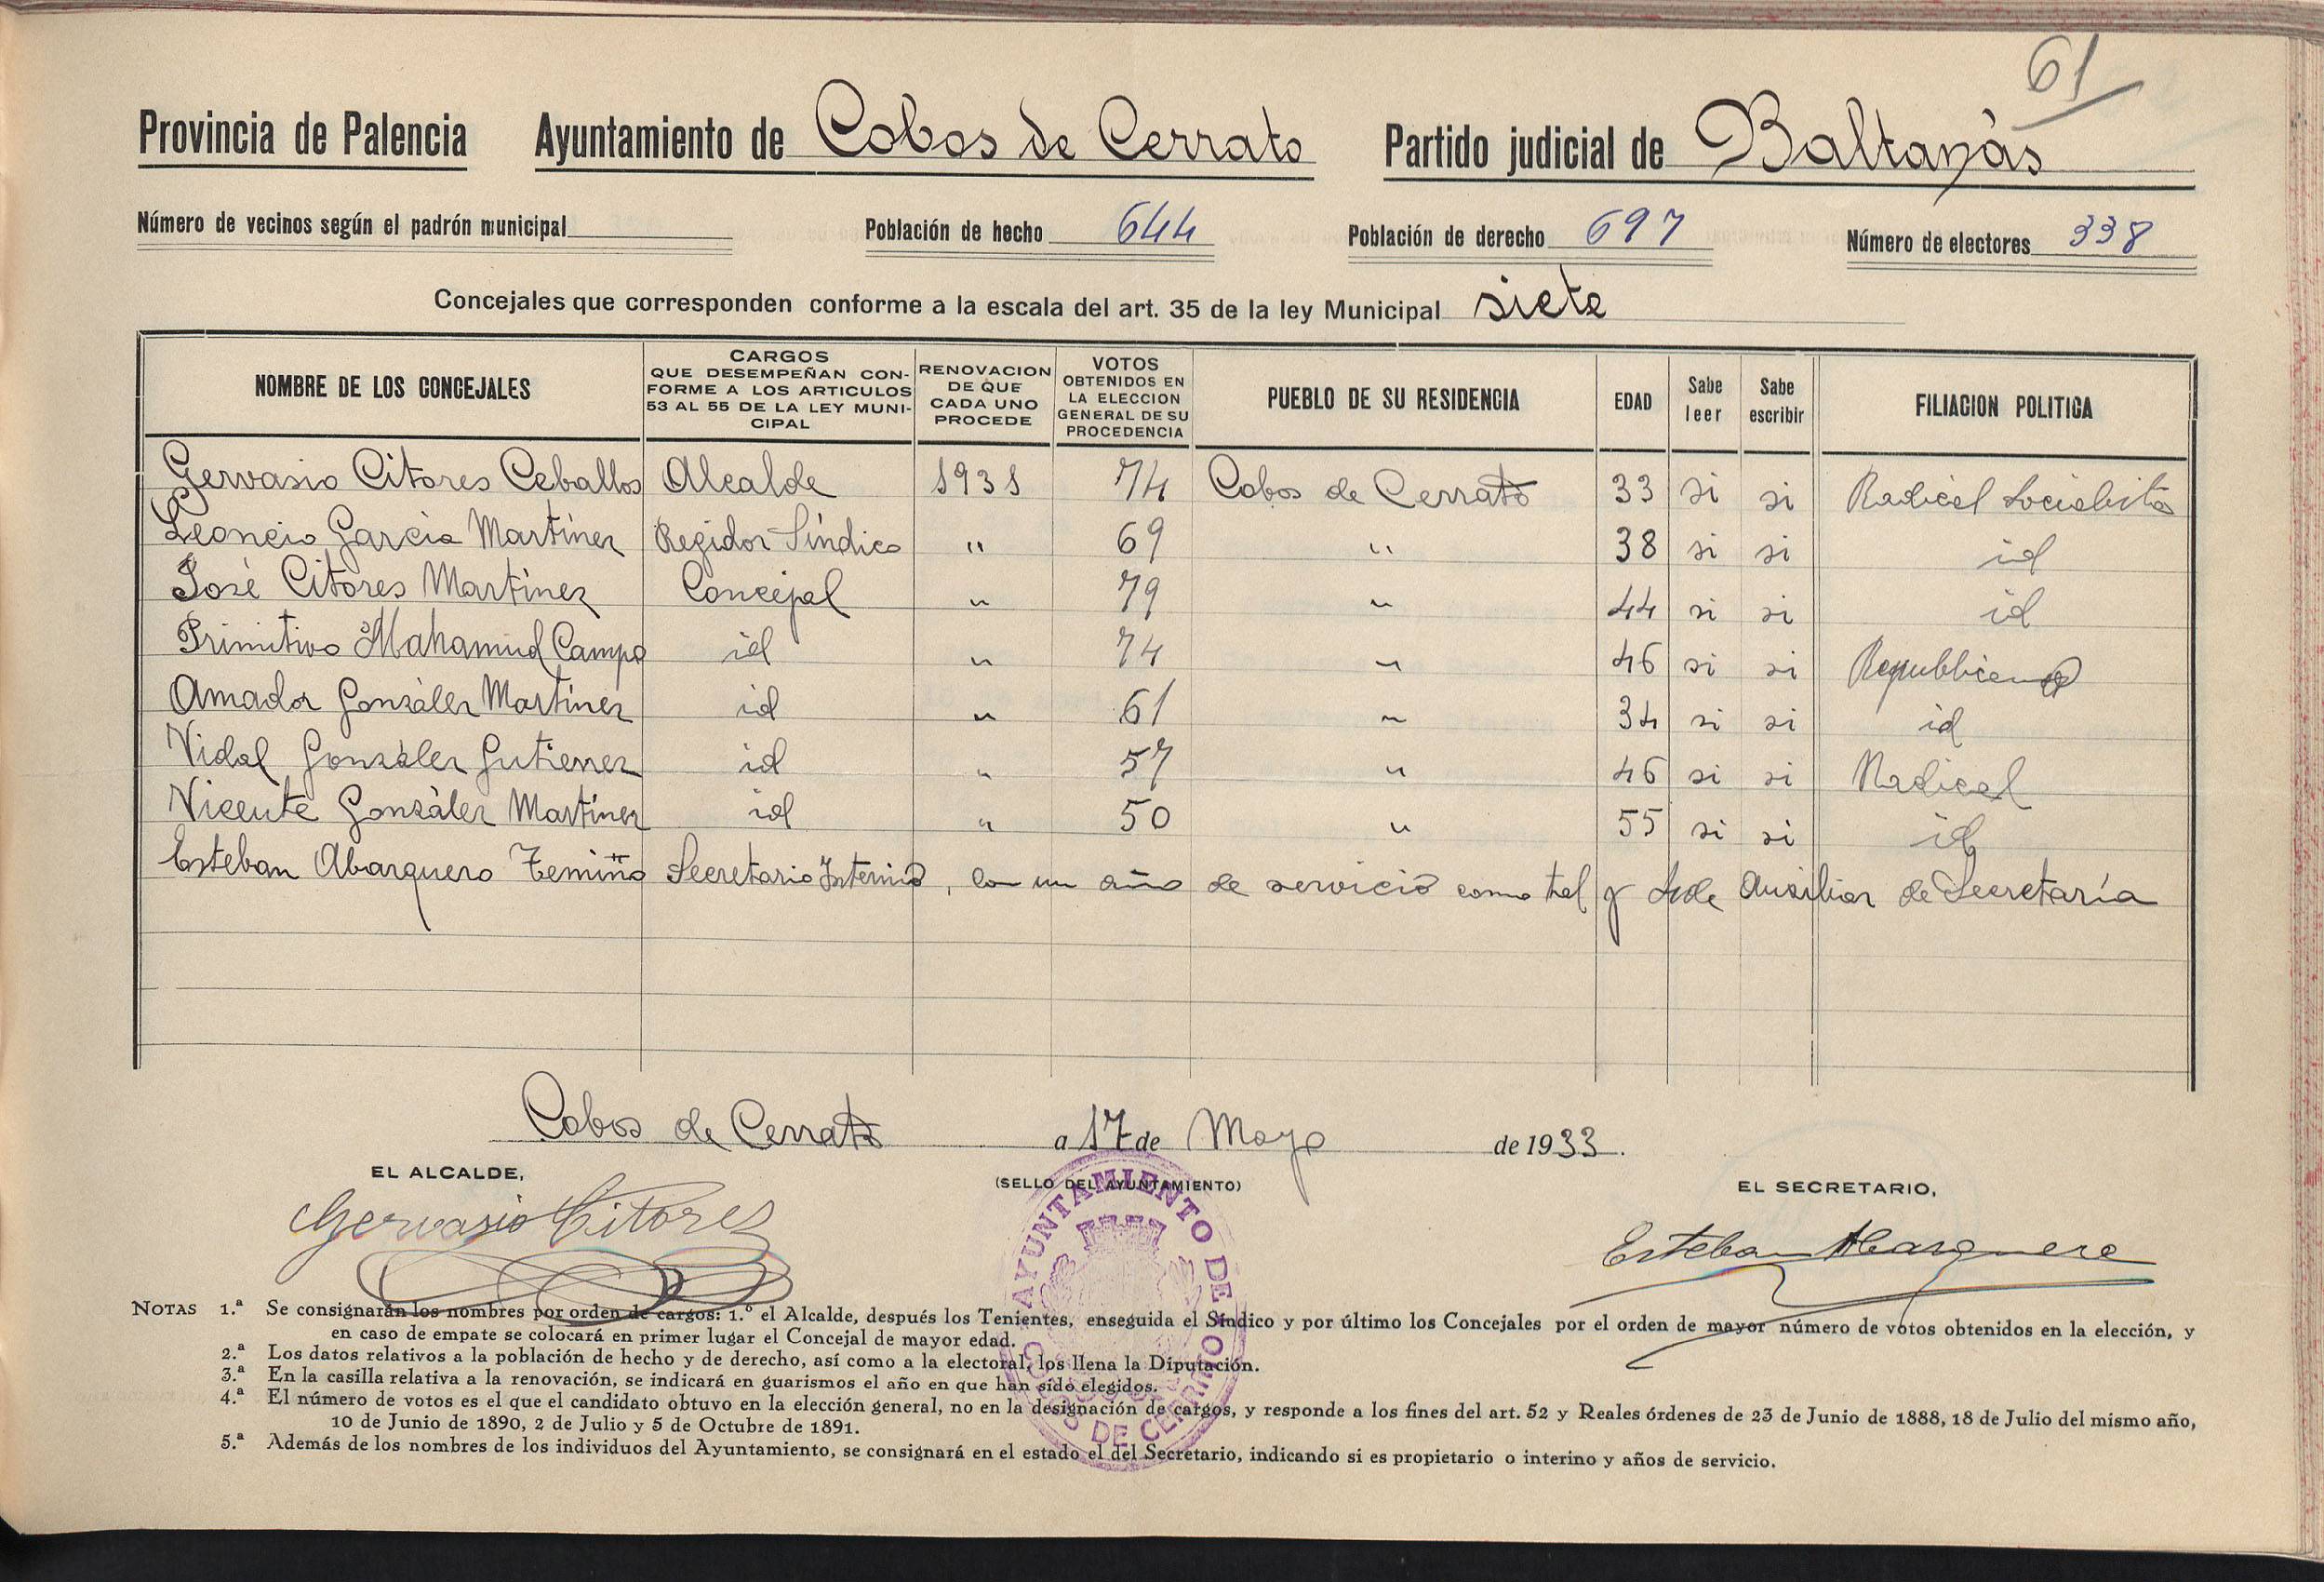 61
Provincia de Palencia Ayuntamiento de Cobos de Cerrato Partido judicial de Baltanás
Número de vecinos según el padrón municipal Población de hecho 644 Población de derecho 697 Número de electores 338
Concejales que corresponden conforme a la escala del art. 35 de la ley Municipal siete
NOMBRE DE LOS CONCEJALES CARGOS QUE DESEMPEÑAN CON-FORME A LOS ARTICULOS 53 AL 55 DE LA LEY MUNI-CIPAL RENOVACION DE QUE CADA UNO PROCEDE VOTOS OBTENIDOS EN LA ELECCION GENERAL DE SU PROCEDENCIA PUEBLO DE SU RESIDENCIA EDAD Sabe leer Sabe escribir FILIACION POLITICA
Gervasio Citores Ceballos Alcalde 1931 74 Cobos de Cerrato 33 si si Radical Socialista
Leoncio García Martínez Regidor Síndico " 69 " 38 si si id
José Citores Martínez Concejal " 79 " 44 si si id
Primitivo Mahamud Campo id " 74 " 46 si si Republicano
Amador González Martínez id " 61 " 34 si si id
Vidal González Gutierrez id " 57 " 46 si si Radical
Vicente González Martínez id " 50 " 55 si si id
Esteban Abarquero Temiño Secretario Interino, con un año de servicio como tal y de Auxiliar de Secretaría
Cobos de Cerrato a 17 de Mayo de 1933.
EL ALCALDE, (SELLO DEL AYUNTAMIENTO) EL SECRETARIO,
Gervasio Citores Esteban Abarquero
AYUNTAMIENTO DE COBOS DE CERRATO
NOTAS 1.ª Se consignarán los nombres por orden de cargos: 1.º el Alcalde, después los Tenientes, enseguida el Síndico y por último los Concejales por el orden de mayor número de votos obtenidos en la elección, y
en caso de empate se colocará en primer lugar el Concejal de mayor edad.
2.ª Los datos relativos a la población de hecho y de derecho, así como a la electoral, los llena la Diputación.
3.ª En la casilla relativa a la renovación, se indicará en guarismos el año en que han sido elegidos.
4.ª El número de votos es el que el candidato obtuvo en la elección general, no en la designación de cargos, y responde a los fines del art. 52 y Reales órdenes de 23 de Junio de 1888, 18 de Julio del mismo año,
10 de Junio de 1890, 2 de Julio y 5 de Octubre de 1891.
5.ª Además de los nombres de los individuos del Ayuntamiento, se consignará en el estado el del Secretario, indicando si es propietario o interino y años de servicio.